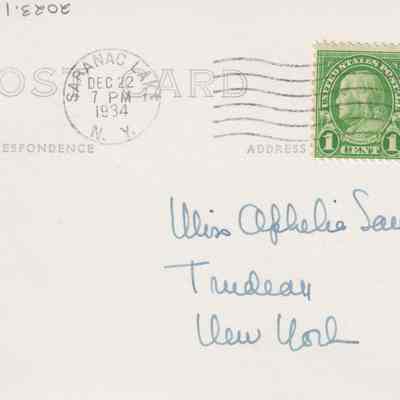 2023.1
POST CARD
SARANAC LAKE
DEC 22
7 PM
1934
N. Y.
UNITED STATES POSTAGE
1 CENT 1
ESPONDENCE
ADDRESS
Miss Ophelia
Trudeau
New York